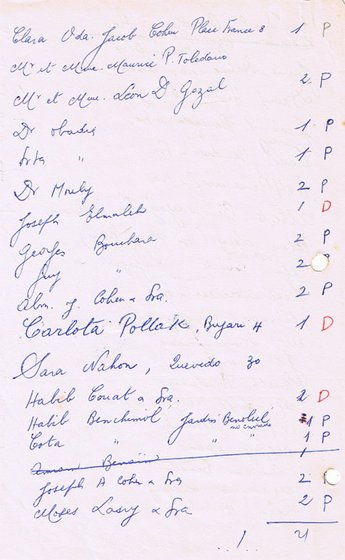 Clara Vda. Jacob Cohen Place France 8 1 P
Mr et Mme. Maurice P. Toledano
Mr et Mme. Léon D. Gozal 2 P
Dr Obadia 1 P
" 1 P
Dr Mouly 2 P
Joseph Elmaleh 1 D
Georges Bouchara 2 P
Guy " 2
Abm. J. Cohen & Sra. 2 P
Carlota Pollak, 4 1 D
Sara Nahon, Quevedo 30
Habib Conat & Sra. 2 D
Habib Benchimol Jardin Benoliel 1 P
Cota " " " 1 P
Joseph A Cohen & Sra 2
Moses Lasry & Sra 2 P
../.. 21